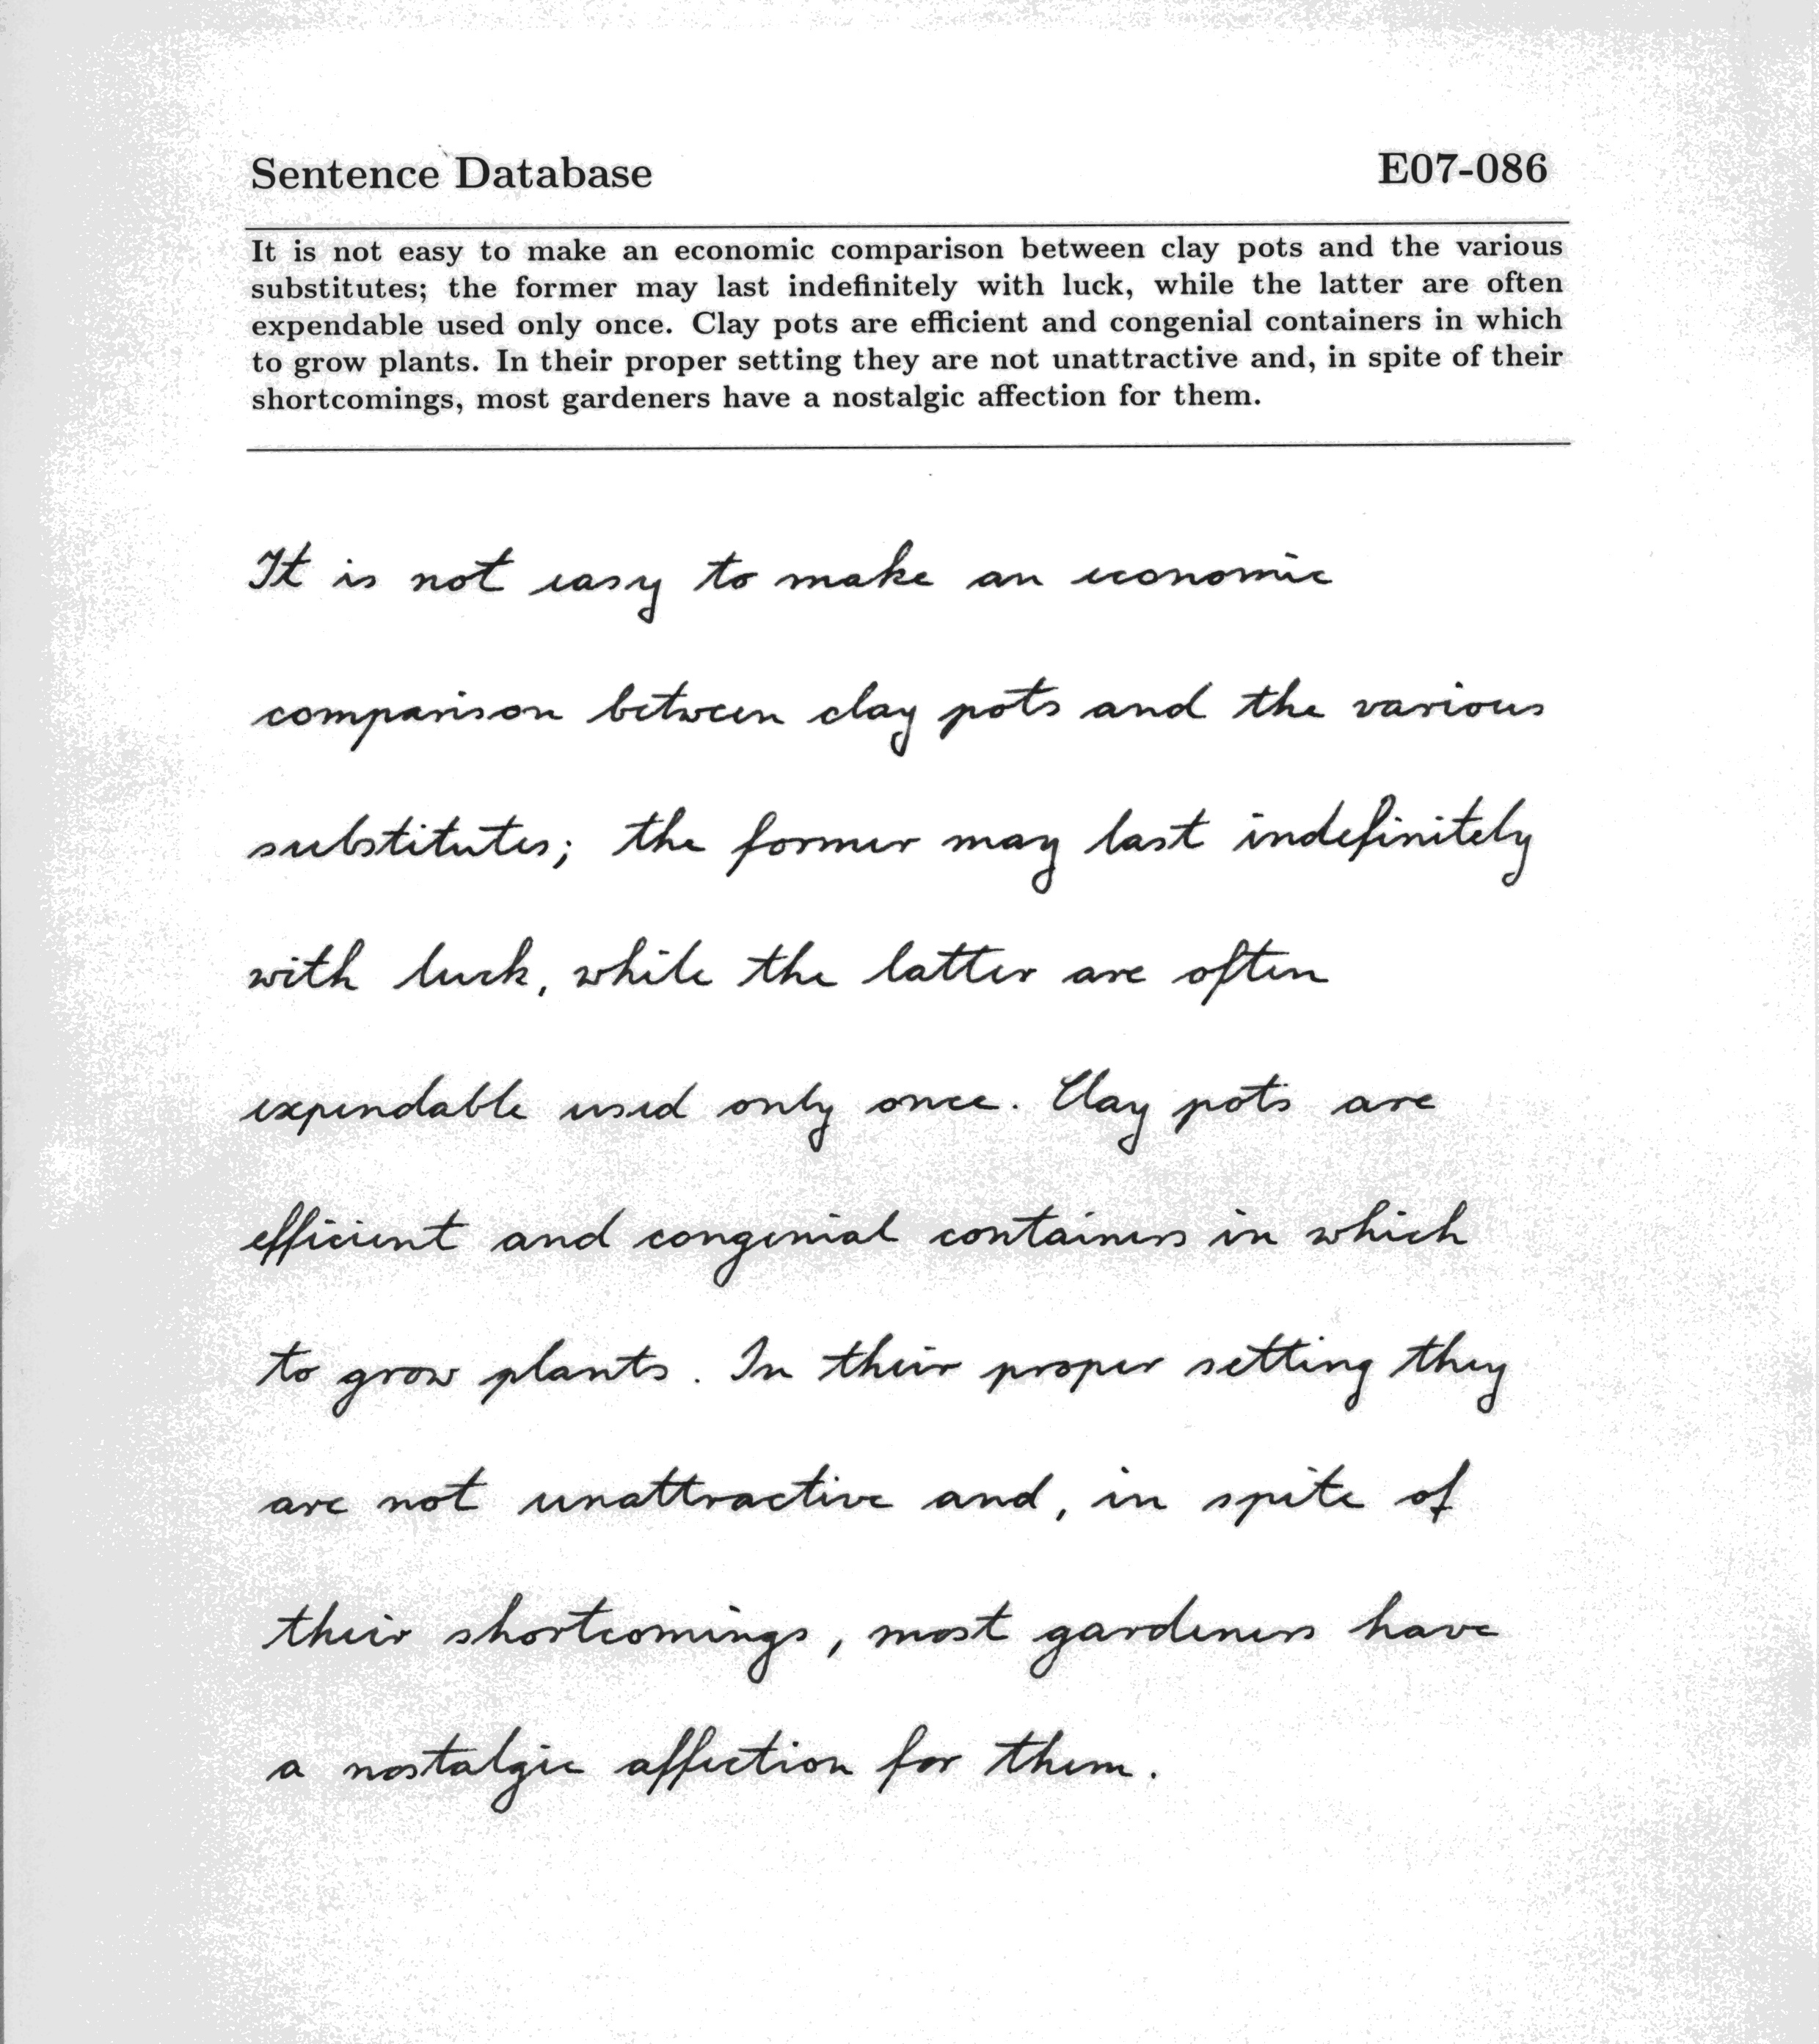 Sentence Database E07-086
It is not easy to make an economic comparison between clay pots and the various
substitutes; the former may last indefinitely with luck, while the latter are often
expendable used only once. Clay pots are efficient and congenial containers in which
to grow plants. In their proper setting they are not unattractive and, in spite of their
shortcomings, most gardeners have a nostalgic affection for them.
It is not easy to make an economic
comparison between clay pots and the various
substitutes; the former may last indefinitely
with luck, while the latter are often
expendable used only once. Clay pots are
efficient and congenial containers in which
to grow plants. In their proper setting they
are not unattractive and, in spite of
their shortcomings, most gardeners have
a nostalgic affection for them.